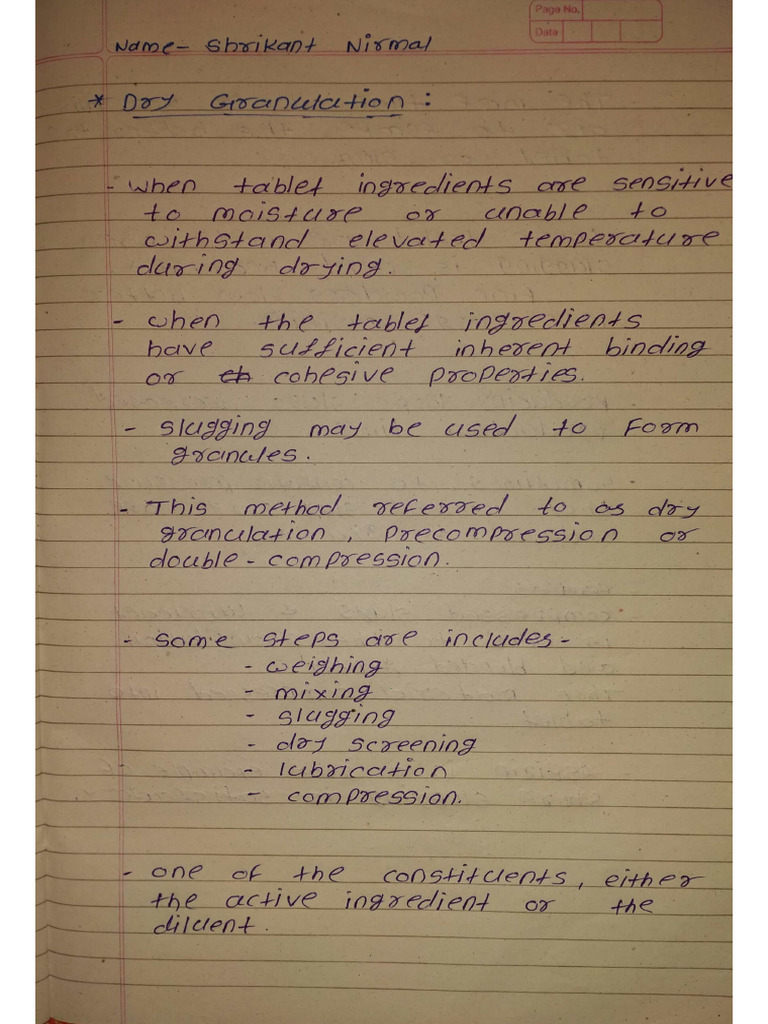 Page No.
Date
Name- Shrikant Nirmal
* Dry Granulation :
- When tablet ingredients are sensitive
to moisture or unable to
withstand elevated temperature
during drying.
- when the tablet ingredients
have sufficient inherent binding
or cohesive properties.
- Slugging may be used to form
granules.
- This method referred to as dry
granulation, precompression or
double-compression.
- some steps are includes-
- weighing
- mixing
- slugging
- dry screening
- lubrication
- compression.
- one of the constituents, either
the active ingredient or the
diluent.